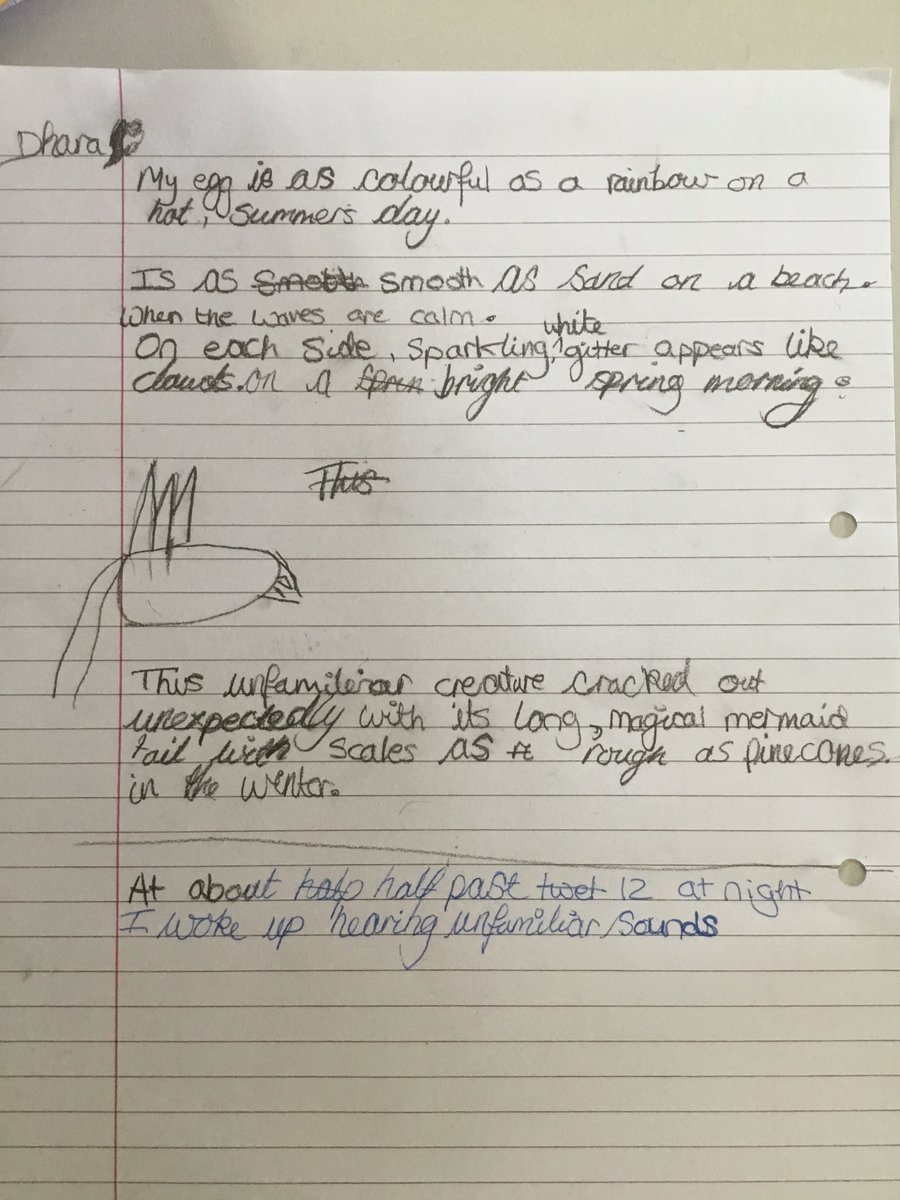 Dhara
My egg is as colourful as a rainbow on a
hot, summer's day.
Is as smooth as sand on a beach.
When the waves are calm.
white
On each side, sparkling, glitter appears like
clouds on a bright spring morning.
This
This unfamileiar creature cracked out
unexpectedly with its long, magical mermaid
tail with scales as rough as pinecones.
in the wentor.
At about half past twet 12 at night
I woke up hearing unfamiliar sounds